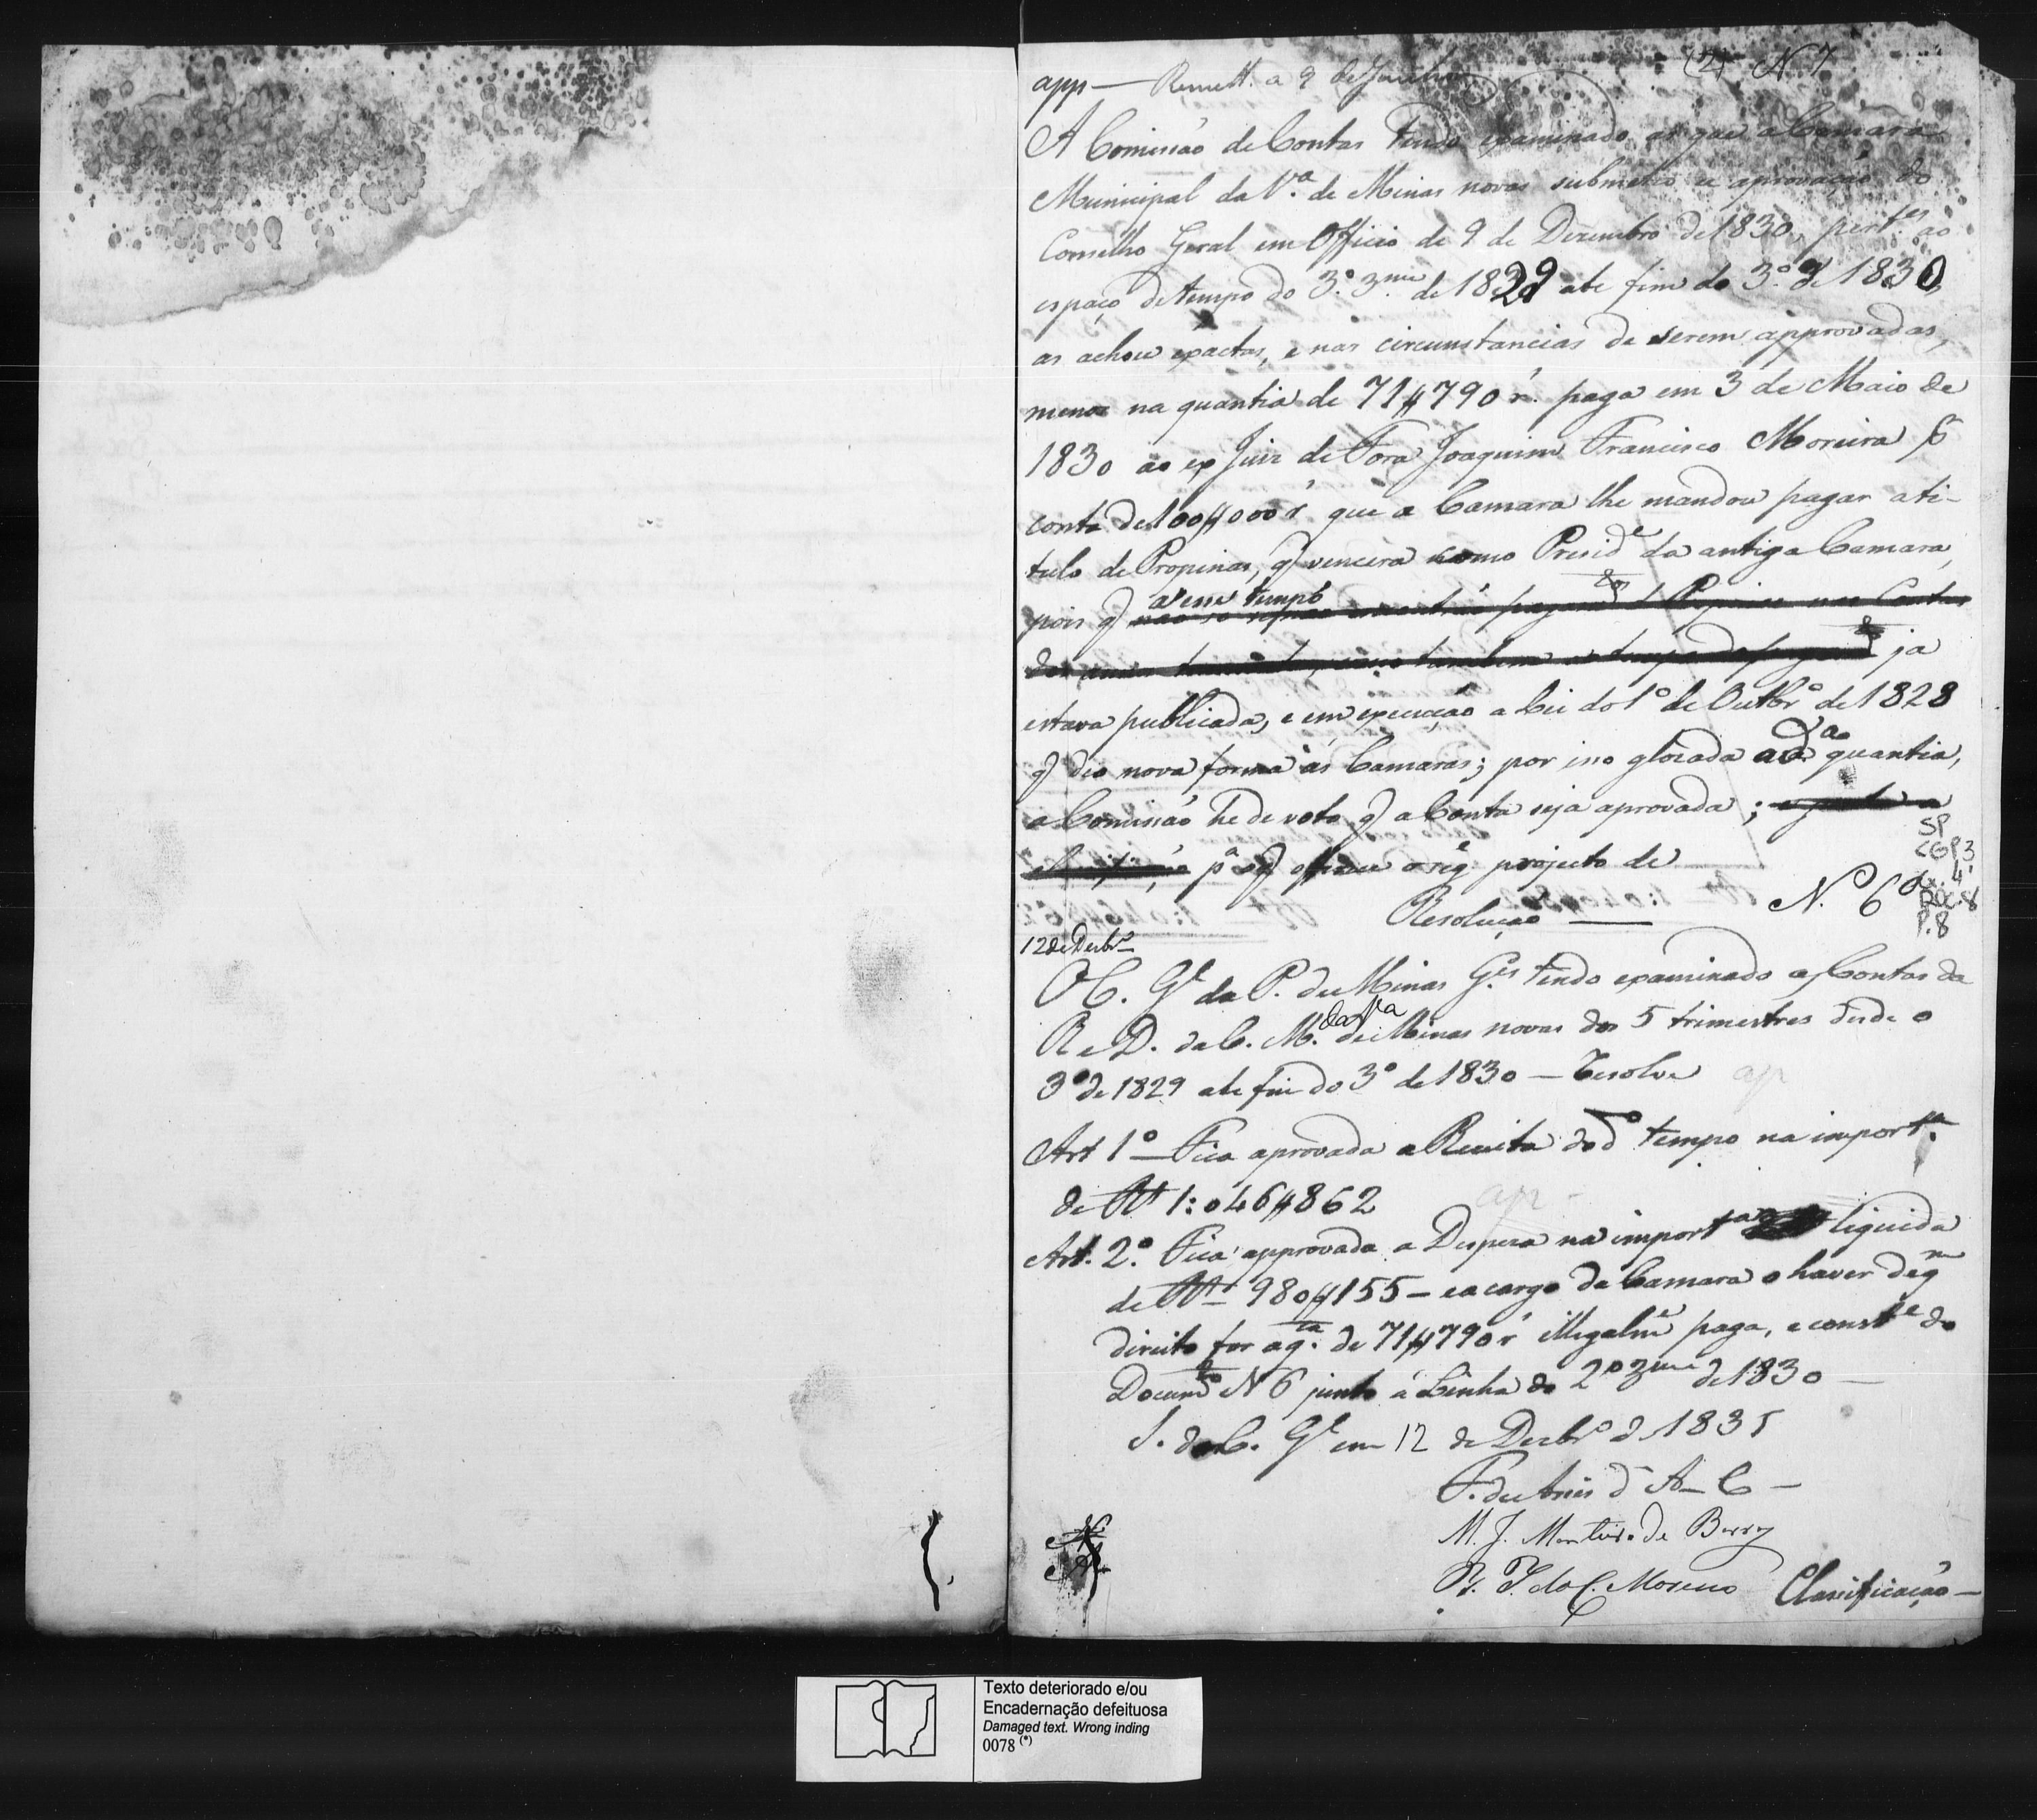 (2) N 7
app — Remett. a 9 de
A Comissaõ de Contas tendo examinado as que a Camara
Municipal da V.ª de Minas novas submeteo a aprovaçaõ do
Conselho Geral em Officio de 9 de Dezembro de 1830, pert.es ao
espaço de tempo do 3.º 3.me de 1829 ate fim do 3.º de 1830,
as achou exactas, e nas circunstancias de serem approvadas,
menos na quantia de 71$790 r.s paga em 3 de Maio de
1830 ao ex Juiz de Fora Joaquim Francisco Moreira p
conta de 100$000 r.s que a Camara lhe mandou pagar a ti-
tulo de Propinas, q vencera como Presid.e da antiga Camara,
pois q a esse tempo
ja
estava publicada, e em execuçaõ a Lei do 1º de Outbr.º de 1828
q deo nova forma ás Camaras; por isso glozada a d.ª quantia,
a Comissaõ he de voto q a Conta seja aprovada;
p.ª o q offerece o seg.e projecto de
Resoluçaõ — N.º 6
SP
CGP3
Cx. 4
DOC. 8
P. 8
12 de Dezbr.º
O C. G.l da P. de Minas G.es tendo examinado as Contas da
R e D. da C. M. da V.a de Minas novas dos 5 trimestres desde o
3º de 1829 ate fim do 3º de 1830 — Resolve ap
Art 1º — Fica aprovada a Receita do d.º tempo na import.ª
de R.s 1:046$862 ap
Art. 2.º Fica approvada a Despeza na import.ª liquida
de R.s 980$155 — e a cargo da Camara o haver de q.m
direito for a q.ta de 71$790 r.s illegalm.e paga, e const.e do
Docum.to N 6 junto á Linha do 2º 3.me de 1830 —
S. do C. G.l em 12 de Dezbr.º d 1831
F. de Assis d' A— C —
M. J. Monteiro de Barros
P. da C. Moreno Classificaçaõ —
Texto deteriorado e/ou
Encadernação defeituosa
Damaged text. Wrong inding
0078 (*)